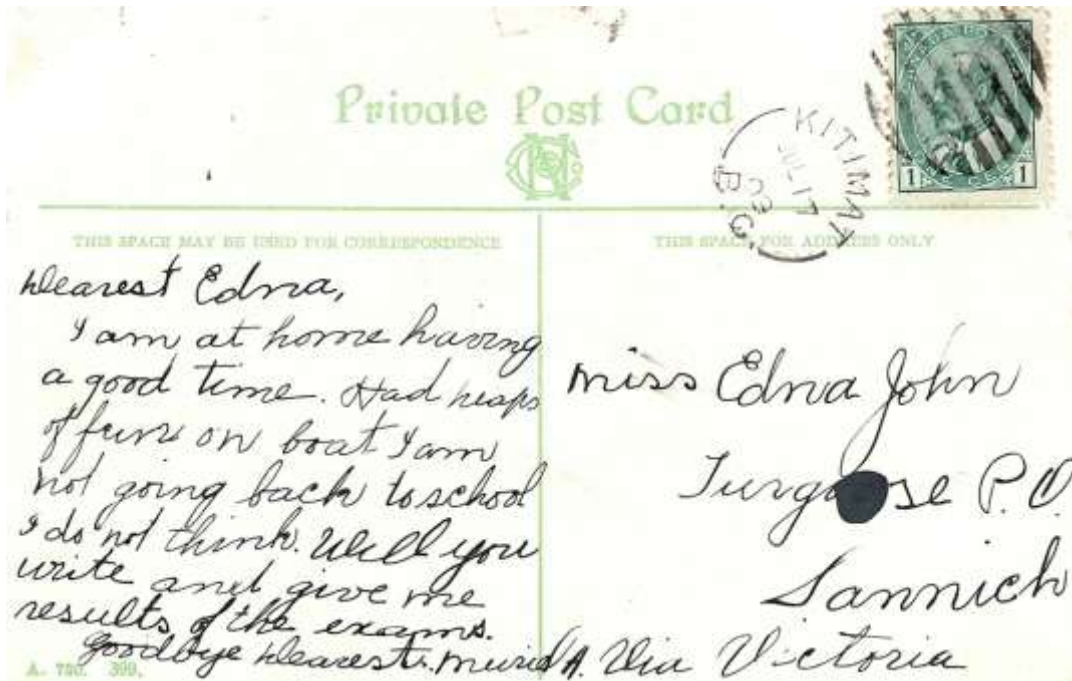 Private Post Card
KITIMAT
JUL 17
09
B.C.
1 1
THIS SPACE MAY BE USED FOR CORRESPONDENCE
THIS SPACE FOR ADDRESS ONLY
Dearest Edna,
I am at home having
a good time. Had heaps
of fun on boat I am
not going back to school
I do not think. Will you
write and give me
results of the exams.
Goodbye Dearest. Muriel A.
Miss Edna John
Turgoose P.O.
Sannich
Via Victoria
A. 730. 399.